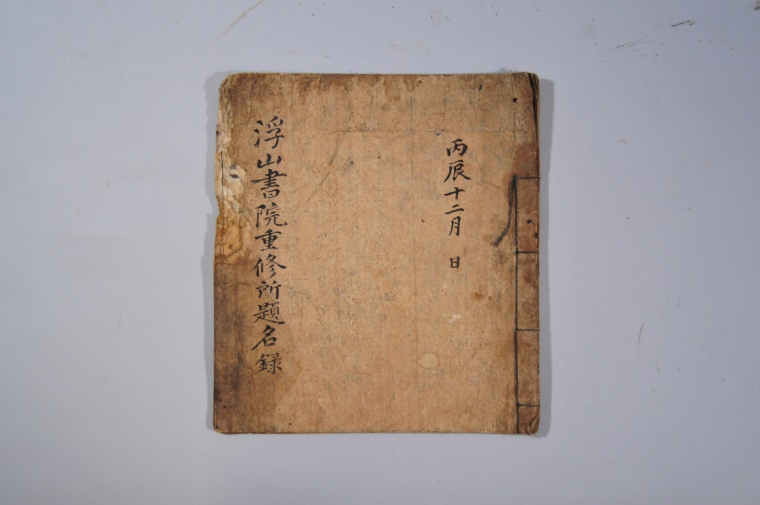 丙辰十二月 日
浮山書院重修所題名録